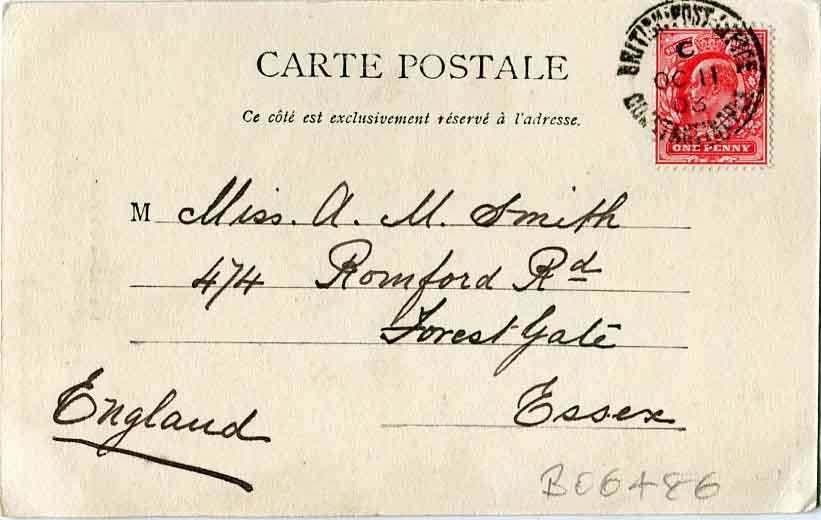 CARTE POSTALE
Ce côté est exclusivement réservé à l'adresse.
BRITISH POST OFFICE
C
OC 11
03
CONSTANTINOPLE
ONE PENNY
M Miss. A. M. Smith
474 Romford Rd
Forest Gate
Essex
England
B06486